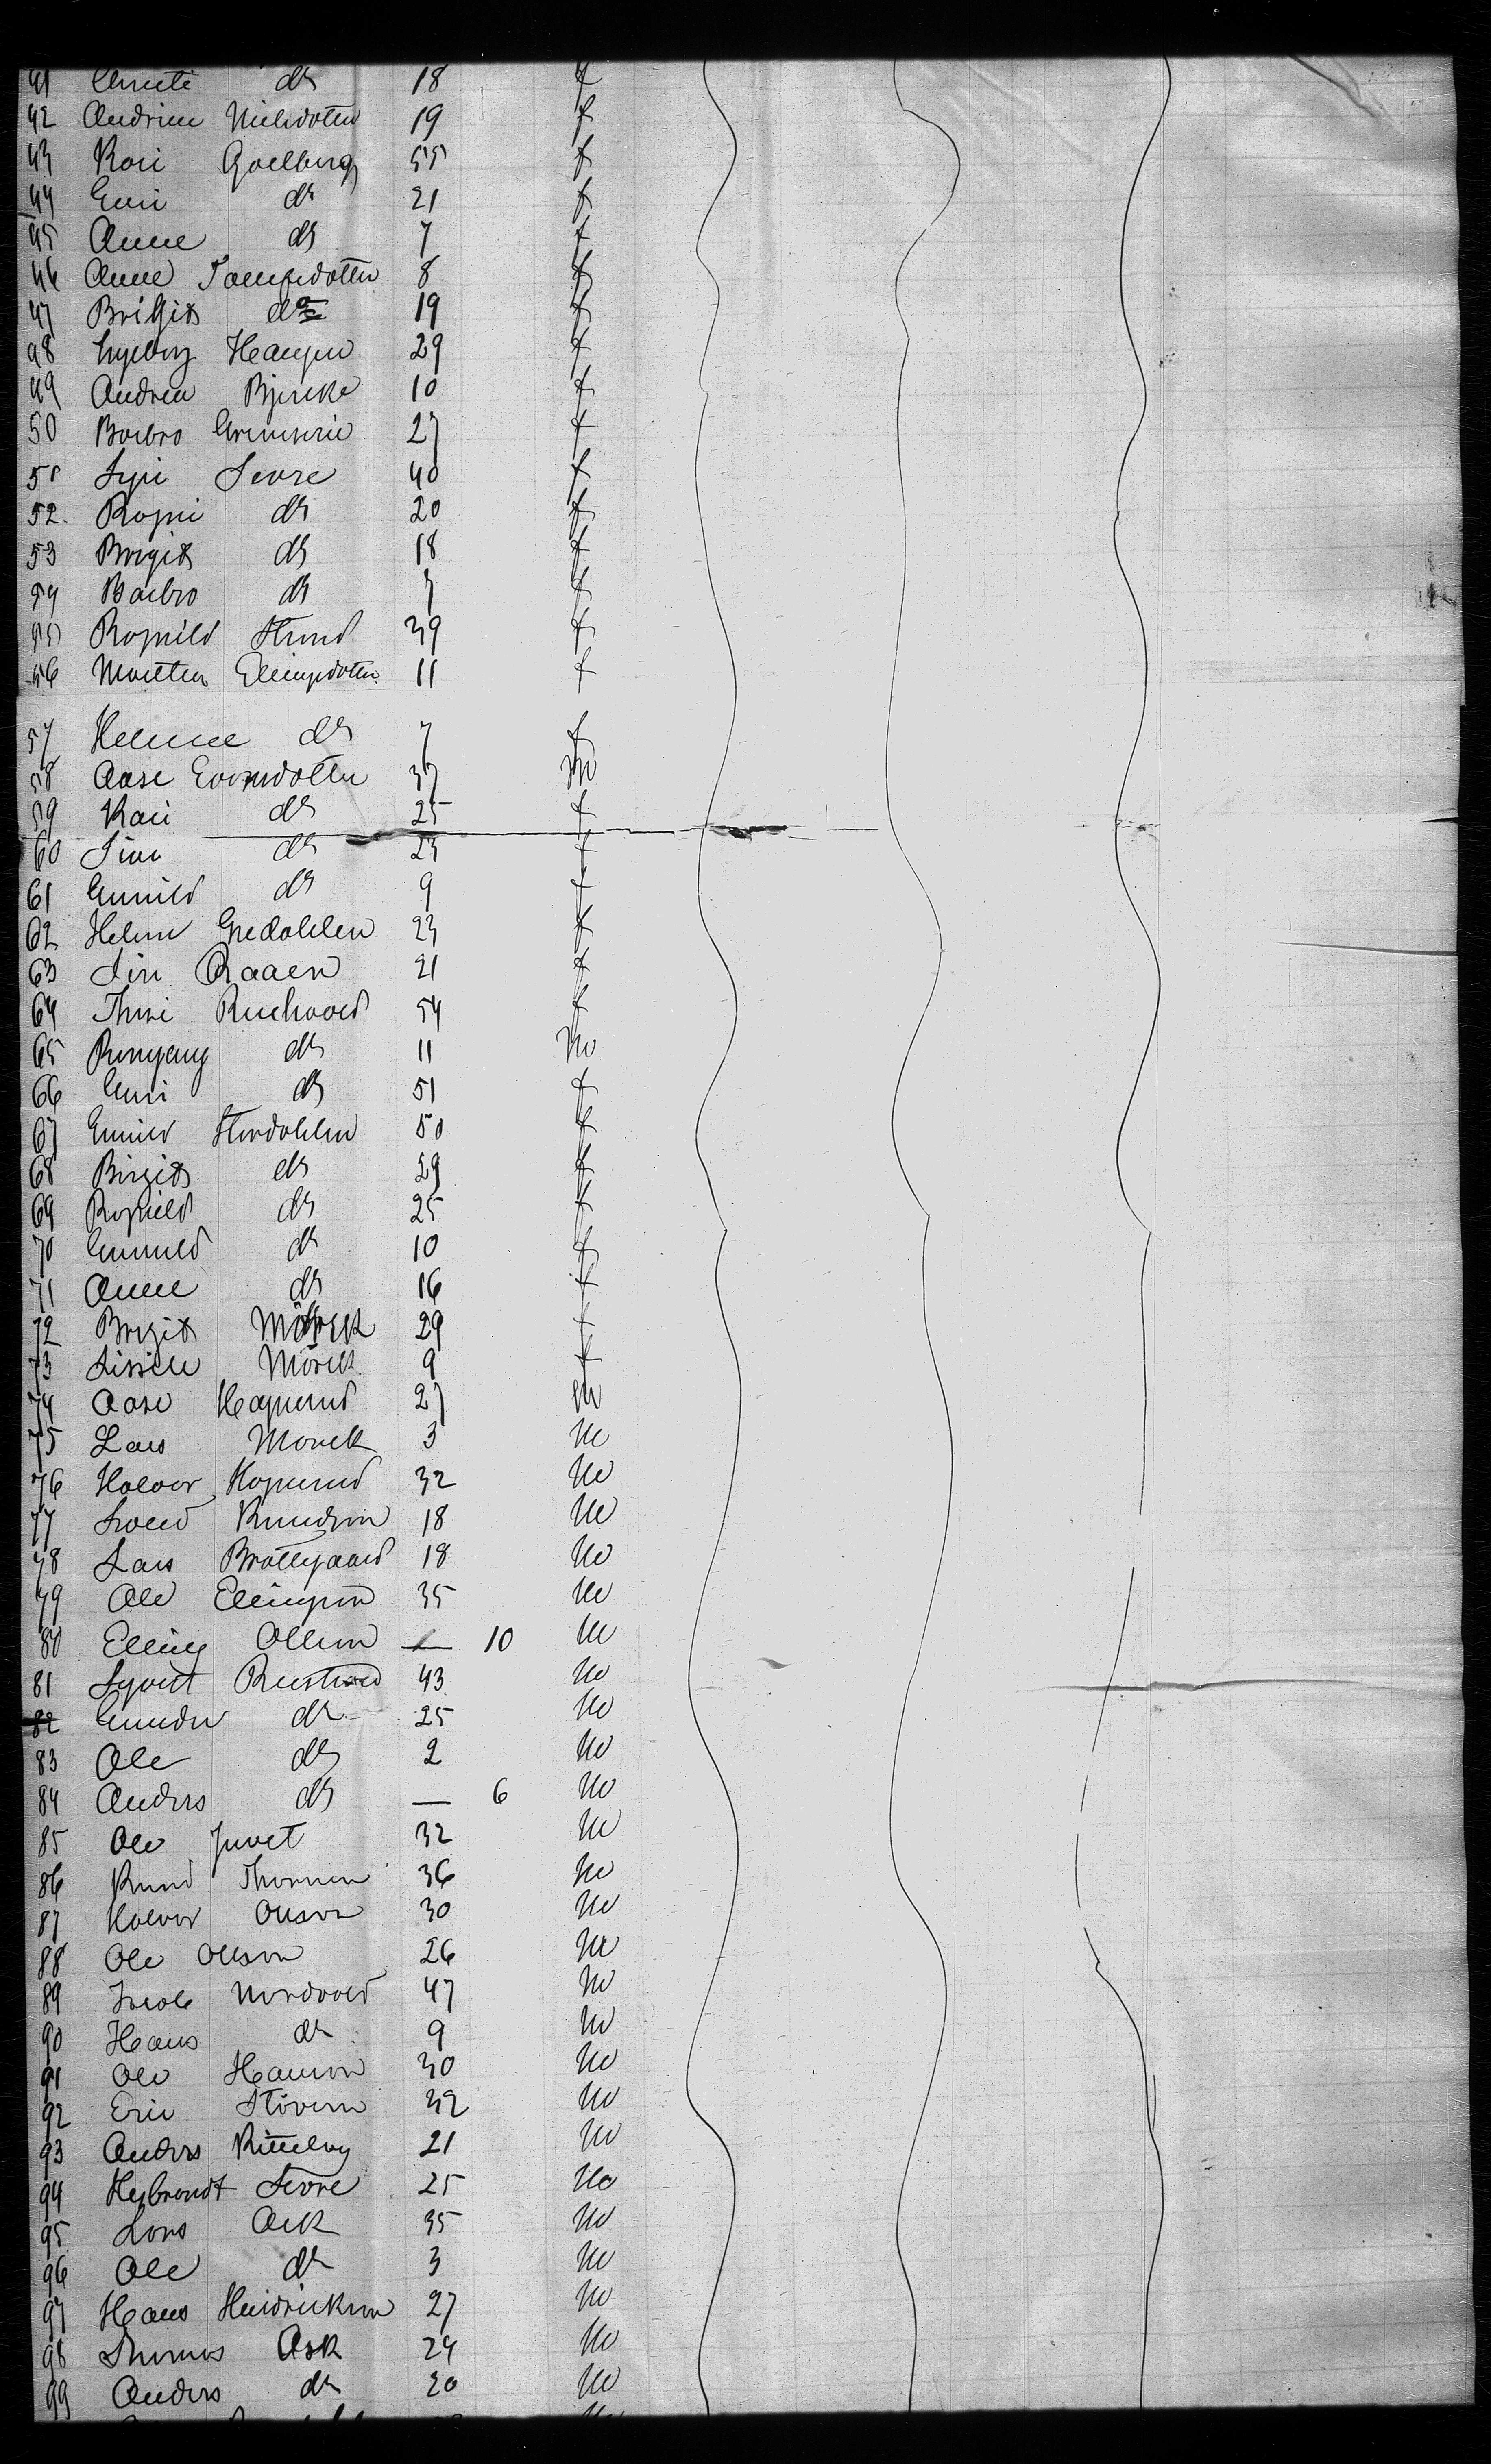 41 do 18 f
42 19 f
43 Kari 55 f
44 Guri do 21 f
45 Anne do 7 f
46 Anne 8 f
47 Birgit do 19 f
48 Ingeborg Hansen 29 f
49 Andrea Bjercke 10 f
50 Barbro 27 f
51 Sevre 40 f
52 Ragni do 20 f
53 Birgit do 18 f
54 Barbro do 7 f
55 Ragnild 39 f
56 Martea Ellingsdotter 11 f
57 Helene do 7 f
58 Aase 37 m
59 Kari do 25 f
60 Siri do 23 f
61 Gunild do 9 f
62 Helene 23 f
63 Siri Raaen 21 f
64 Thuri 54 f
65 do 11 m
66 Guri do 51 f
67 Gunild 50 f
68 Birgit do 29 f
69 Ragnild do 25 f
70 Gunnild do 10 f
71 Anne do 16 f
72 Birgit Mörck 29 f
73 Sissille Mörck 9 f
74 Aase 27 m
75 Lars Mörck 3 m
76 Halvor 32 m
77 Svend Knudson 18 m
78 Lars Brattegaard 18 m
79 Ole Ellingson 35 m
80 Elling Ollson — 10 m
81 Syvert Rustvold 43 m
82 Gunder do 25 m
83 Ole do 2 m
84 Anders do — 6 m
85 Ole Juvet 32 m
86 Knud 36 m
87 Halvor Olson 30 m
88 Ole Ollson 26 m
89 Jacob Nordvold 47 m
90 Hans do 9 m
91 Ole Hanson 30 m
92 Eric 32 m
93 Anders 21 m
94 Herbrandt Sevre 25 m
95 Lars Ask 35 m
96 Ole do 3 m
97 Hans Heidrickson 27 m
98 Thomas Ask 24 m
99 Anders do 20 m